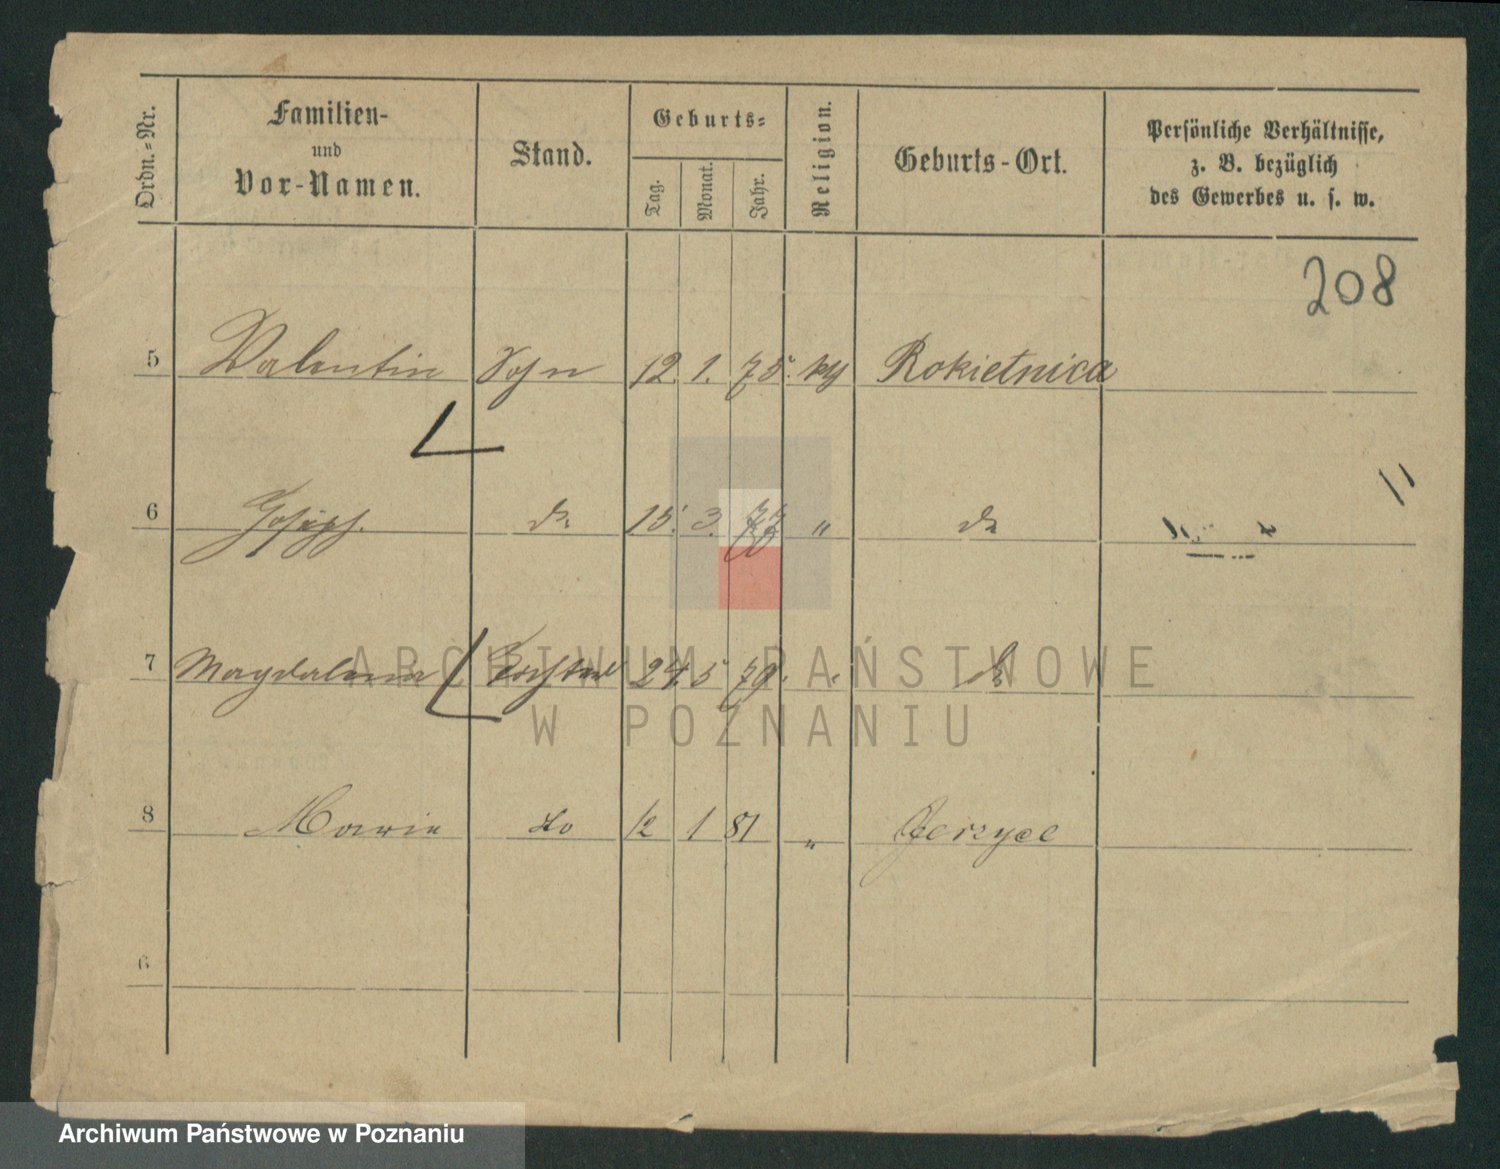 Ordn.-Nr. Familien- und Vor-Namen. Stand. Geburts- Tag. Monat. Jahr. Religion. Geburts-Ort. Persönliche Verhältnisse, z. B. bezüglich des Gewerbes u. s. w.
208
5 Valentin Sohn 12. 1. 75. kg Rokietnica
6 Joseph. do 15. 3. 77 " do
7 Magdalena Tochter 24. 5 79. " do
8 Marie do 12 1 81 " Jerzyce
6
ARCHIWUM PAŃSTWOWE
W POZNANIU
Archiwum Państwowe w Poznaniu